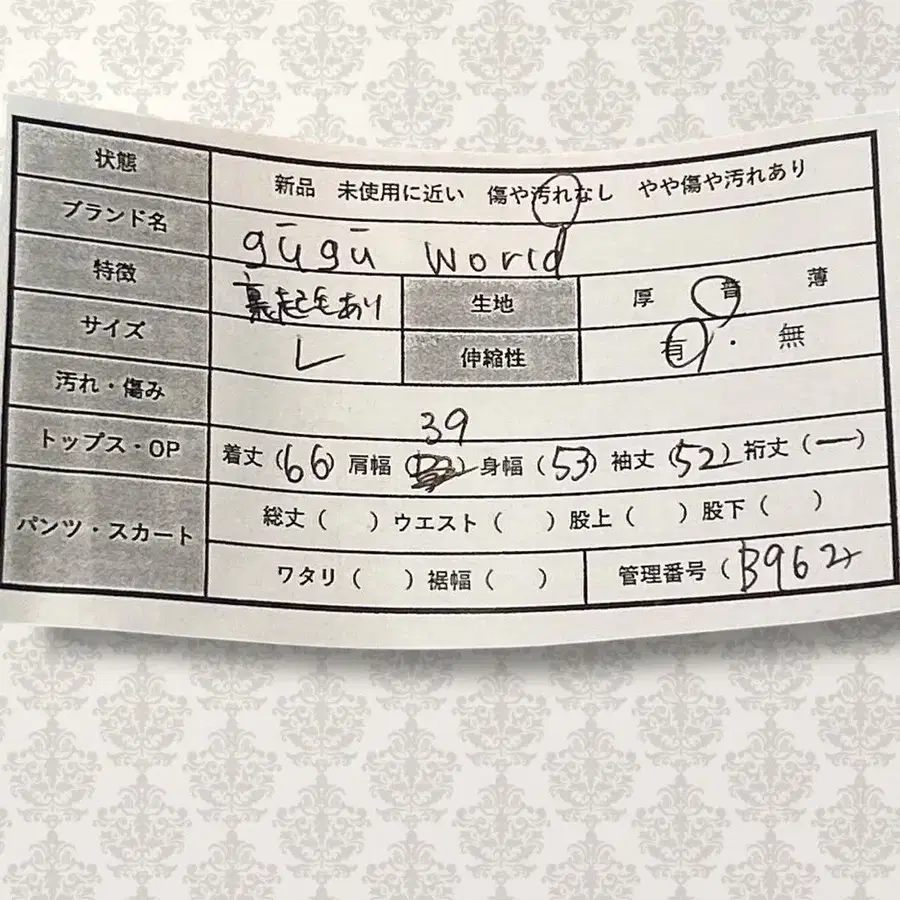 状態 新品 未使用に近い 傷や汚れなし やや傷や汚れあり
ブランド名 gūgū world
特徴 裏起毛あり 生地 厚 普 薄
サイズ L 伸縮性 有・無
汚れ・傷み
39
トップス・OP 着丈(66) 肩幅( ) 身幅(53) 袖丈(52) 裄丈(ー)
パンツ・スカート 総丈( ) ウエスト( ) 股上( ) 股下( )
ワタリ( ) 裾幅( ) 管理番号(B962)